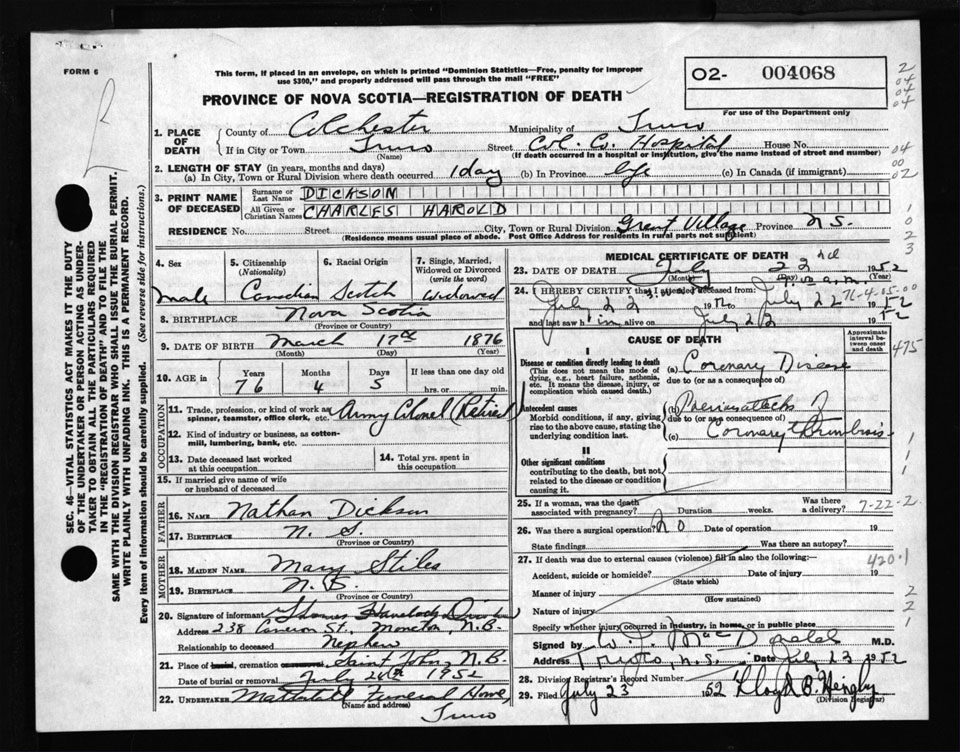 FORM 6
This form, if placed in an envelope, on which is printed "Dominion Statistics—Free, penalty for improper
use $300," and properly addressed will pass through the mail "FREE"
PROVINCE OF NOVA SCOTIA—REGISTRATION OF DEATH
O2- 004068
For use of the Department only
2
04
04
04
1. PLACE OF DEATH
County of Colchester Municipality of Truro
If in City or Town Truro Street Col. Co. Hospital House No.
(Name) (If death occurred in a hospital or institution, give the name instead of street and number)
04
00
02
2. LENGTH OF STAY (in years, months and days)
(a) In City, Town or Rural Division where death occurred 1 day (b) In Province life (c) In Canada (if immigrant)
3. PRINT NAME OF DECEASED
Surname or Last Name DICKSON
All Given or Christian Names CHARLES HAROLD
RESIDENCE No. Street City, Town or Rural Division Great Village Province N.S.
(Residence means usual place of abode. Post Office Address for residents in rural parts not sufficient)
1
0
2
3
4. Sex
Male
5. Citizenship
(Nationality)
Canadian
6. Racial Origin
Scotch
7. Single, Married,
Widowed or Divorced
(write the word)
Widowed
8. BIRTHPLACE Nova Scotia
(Province or Country)
9. DATE OF BIRTH March 17th 1876
(Month) (Day) (Year)
10. AGE in Years 76 Months 4 Days 5 If less than one day old
hrs. or min.
OCCUPATION
11. Trade, profession, or kind of work as
spinner, teamster, office clerk, etc. Army Colonel (Retired)
12. Kind of industry or business, as cotton-
mill, lumbering, bank, etc.
13. Date deceased last worked
at this occupation
14. Total yrs. spent in
this occupation
15. If married give name of wife
or husband of deceased
FATHER
16. NAME Nathan Dickson
17. BIRTHPLACE N. S.
(Province or Country)
MOTHER
18. MAIDEN NAME Mary Stiles
19. BIRTHPLACE N. B.
(Province or Country)
20. Signature of informant Thomas Havelock
Address 238 Cameron St., Moncton, N.B.
Relationship to deceased Nephew
21. Place of burial, cremation Saint John, N.B.
Date of burial or removal July 24th 1952
22. UNDERTAKER Mattatall Funeral Home,
(Name and address)
Truro
MEDICAL CERTIFICATE OF DEATH
23. DATE OF DEATH July 22nd 1952
(Month) (Day)
24. I HEREBY CERTIFY that I attended deceased from:
July 22 19 to July 22 1952
76-4-05-00
and last saw him alive on July 22 1952
CAUSE OF DEATH
Approximate
interval be-
tween onset
and death
475
I
Disease or condition directly leading to death
(This does not mean the mode of
dying, e.g., heart failure, asthenia,
etc. It means the disease, injury, or
complication which caused death.)
(a) Coronary Disease
due to (or as a consequence of)
Antecedent causes
Morbid conditions, if any, giving
rise to the above cause, stating the
underlying condition last.
(b) Previous attacks of
due to (or as a consequence of)
(c) Coronary thrombosis
II
Other significant conditions
contributing to the death, but not
related to the disease or condition
causing it.
1
1
1
25. If a woman, was the death
associated with pregnancy? Duration weeks. Was there
a delivery?
7-22-2
26. Was there a surgical operation? NO Date of operation 19
State findings Was there an autopsy?
27. If death was due to external causes (violence) fill in also the following:
420.1
Accident, suicide or homicide? Date of injury 19
(State which)
Manner of injury
(How sustained)
Nature of injury
Specify whether injury occurred in industry, in home, or in public place
2
2
1
Signed by MacDonald M.D.
Address Truro, N.S. Date July 23 1952
28. Division Registrar's Record Number
29. Filed July 23 1952 Lloyd B.
(Division Registrar)
SEC. 46—VITAL STATISTICS ACT MAKES IT THE DUTY
OF THE UNDERTAKER OR PERSON ACTING AS UNDER-
TAKER TO OBTAIN ALL THE PARTICULARS REQUIRED
IN THE "REGISTRATION OF DEATH" AND TO FILE THE
SAME WITH THE DIVISION REGISTRAR WHO SHALL ISSUE THE BURIAL PERMIT.
WRITE PLAINLY WITH UNFADING INK. THIS IS A PERMANENT RECORD.
Every item of information should be carefully supplied. (See reverse side for instructions.)